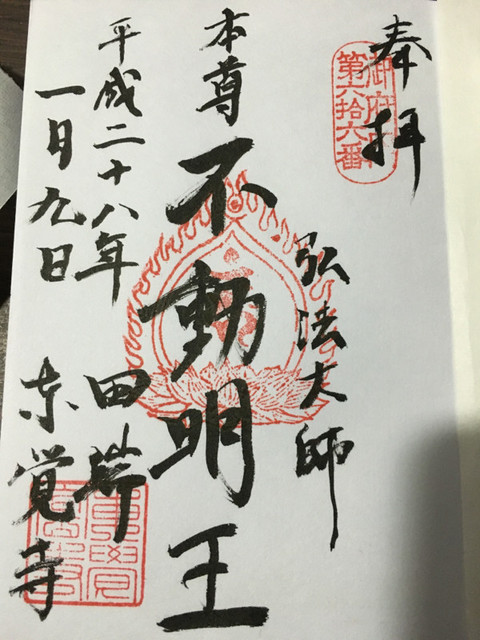 奉拝
御府内
第六拾六番
弘法大師
本尊 不動明王
平成二十八年
一月九日
田端
東覚寺